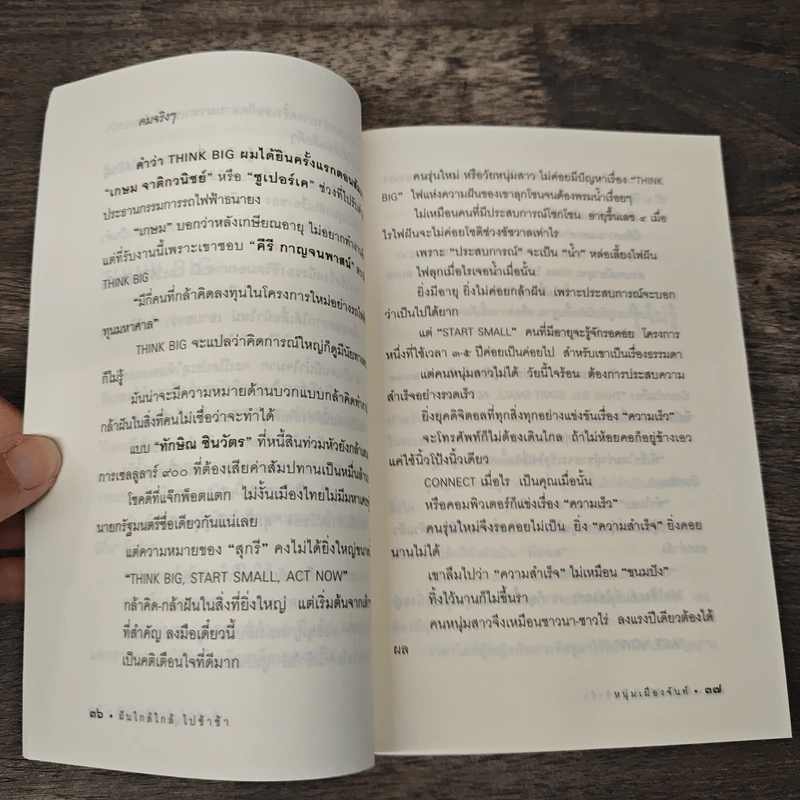 คมจริงๆ
คำว่า THINK BIG ผมได้ยินครั้งแรกตอน
"เกษม จาติกวณิชย์" หรือ "ซูเปอร์เค" ช่วงที่ไปรับ
ประธานกรรมการรถไฟฟ้าธนายง
"เกษม" บอกว่าหลังเกษียณอายุ ไม่อยากทำงาน
แต่ที่รับงานนี้เพราะเขาชอบ "คีรี กาญจนพาสน์"
THINK BIG
"มีกี่คนที่กล้าคิดลงทุนในโครงการใหม่อย่างรถไฟ
ทุนมหาศาล"
THINK BIG จะแปลว่าคิดการณ์ใหญ่ก็ดูมีนัยทาง
ก็ไม่รู้
มันน่าจะมีความหมายด้านบวกแบบกล้าคิดทำ
กล้าฝันในสิ่งที่คนไม่เชื่อว่าจะทำได้
แบบ "ทักษิณ ชินวัตร" ที่หนี้สินท่วมหัวยังกล้า
การเซลลูลาร์ ๙๐๐ ที่ต้องเสียค่าสัมปทานเป็นหมื่นล้าน
โชคดีที่แจ็กพ็อตแตก ไม่งั้นเมืองไทยไม่มีมหาเศรษฐี
นายกรัฐมนตรีชื่อเดียวกันแน่เลย
แต่ความหมายของ "สุกรี" คงไม่ได้ยิ่งใหญ่ขนาด
"THINK BIG, START SMALL, ACT NOW"
กล้าคิด-กล้าฝันในสิ่งที่ยิ่งใหญ่ แต่เริ่มต้นจาก
ที่สำคัญ ลงมือเดี๋ยวนี้
เป็นคติเตือนใจที่ดีมาก
๓๖ • ฝันใกล้ใกล้ ไปช้าช้า
คนรุ่นใหม่ หรือวัยหนุ่มสาว ไม่ค่อยมีปัญหาเรื่อง "THINK
BIG" ไฟแห่งความฝันของเขาลุกโชนจนต้องพรมน้ำเรื่อยๆ
ไม่เหมือนคนที่มีประสบการณ์โชกโชน อายุขึ้นเลข ๔ เมื่อ
ไรไฟฝันจะไม่ค่อยโชติช่วงชัชวาลเท่าไร
เพราะ "ประสบการณ์" จะเป็น "น้ำ" หล่อเลี้ยงไฟฝัน
ไฟลุกเมื่อไรเจอน้ำเมื่อนั้น
ยิ่งมีอายุ ยิ่งไม่ค่อยกล้าฝัน เพราะประสบการณ์จะบอก
ว่าเป็นไปได้ยาก
แต่ "START SMALL" คนที่มีอายุจะรู้จักรอคอย โครงการ
หนึ่งที่ใช้เวลา ๓-๕ ปีค่อยเป็นค่อยไป สำหรับเขาเป็นเรื่องธรรมดา
แต่คนหนุ่มสาวไม่ได้ วัยนี้ใจร้อน ต้องการประสบความ
สำเร็จอย่างรวดเร็ว
ยิ่งยุคดิจิตอลที่ทุกสิ่งทุกอย่างแข่งขันเรื่อง "ความเร็ว"
จะโทรศัพท์ก็ไม่ต้องเดินไกล ถ้าไม่ห้อยคอก็อยู่ข้างเอว
แค่ใช้นิ้วโป้งนิ้วเดียว
CONNECT เมื่อไร เป็นคุณเมื่อนั้น
หรือคอมพิวเตอร์ก็แข่งเรื่อง "ความเร็ว"
คนรุ่นใหม่จึงรอคอยไม่เป็น ยิ่ง "ความสำเร็จ" ยิ่งคอย
นานไม่ได้
เขาลืมไปว่า "ความสำเร็จ" ไม่เหมือน "ขนมปัง"
ทิ้งไว้นานก็ไม่ขึ้นรา
คนหนุ่มสาวจึงเหมือนชาวนา-ชาวไร่ ลงแรงปีเดียวต้องได้
ผล
หนุ่มเมืองจันท์ • ๓๗